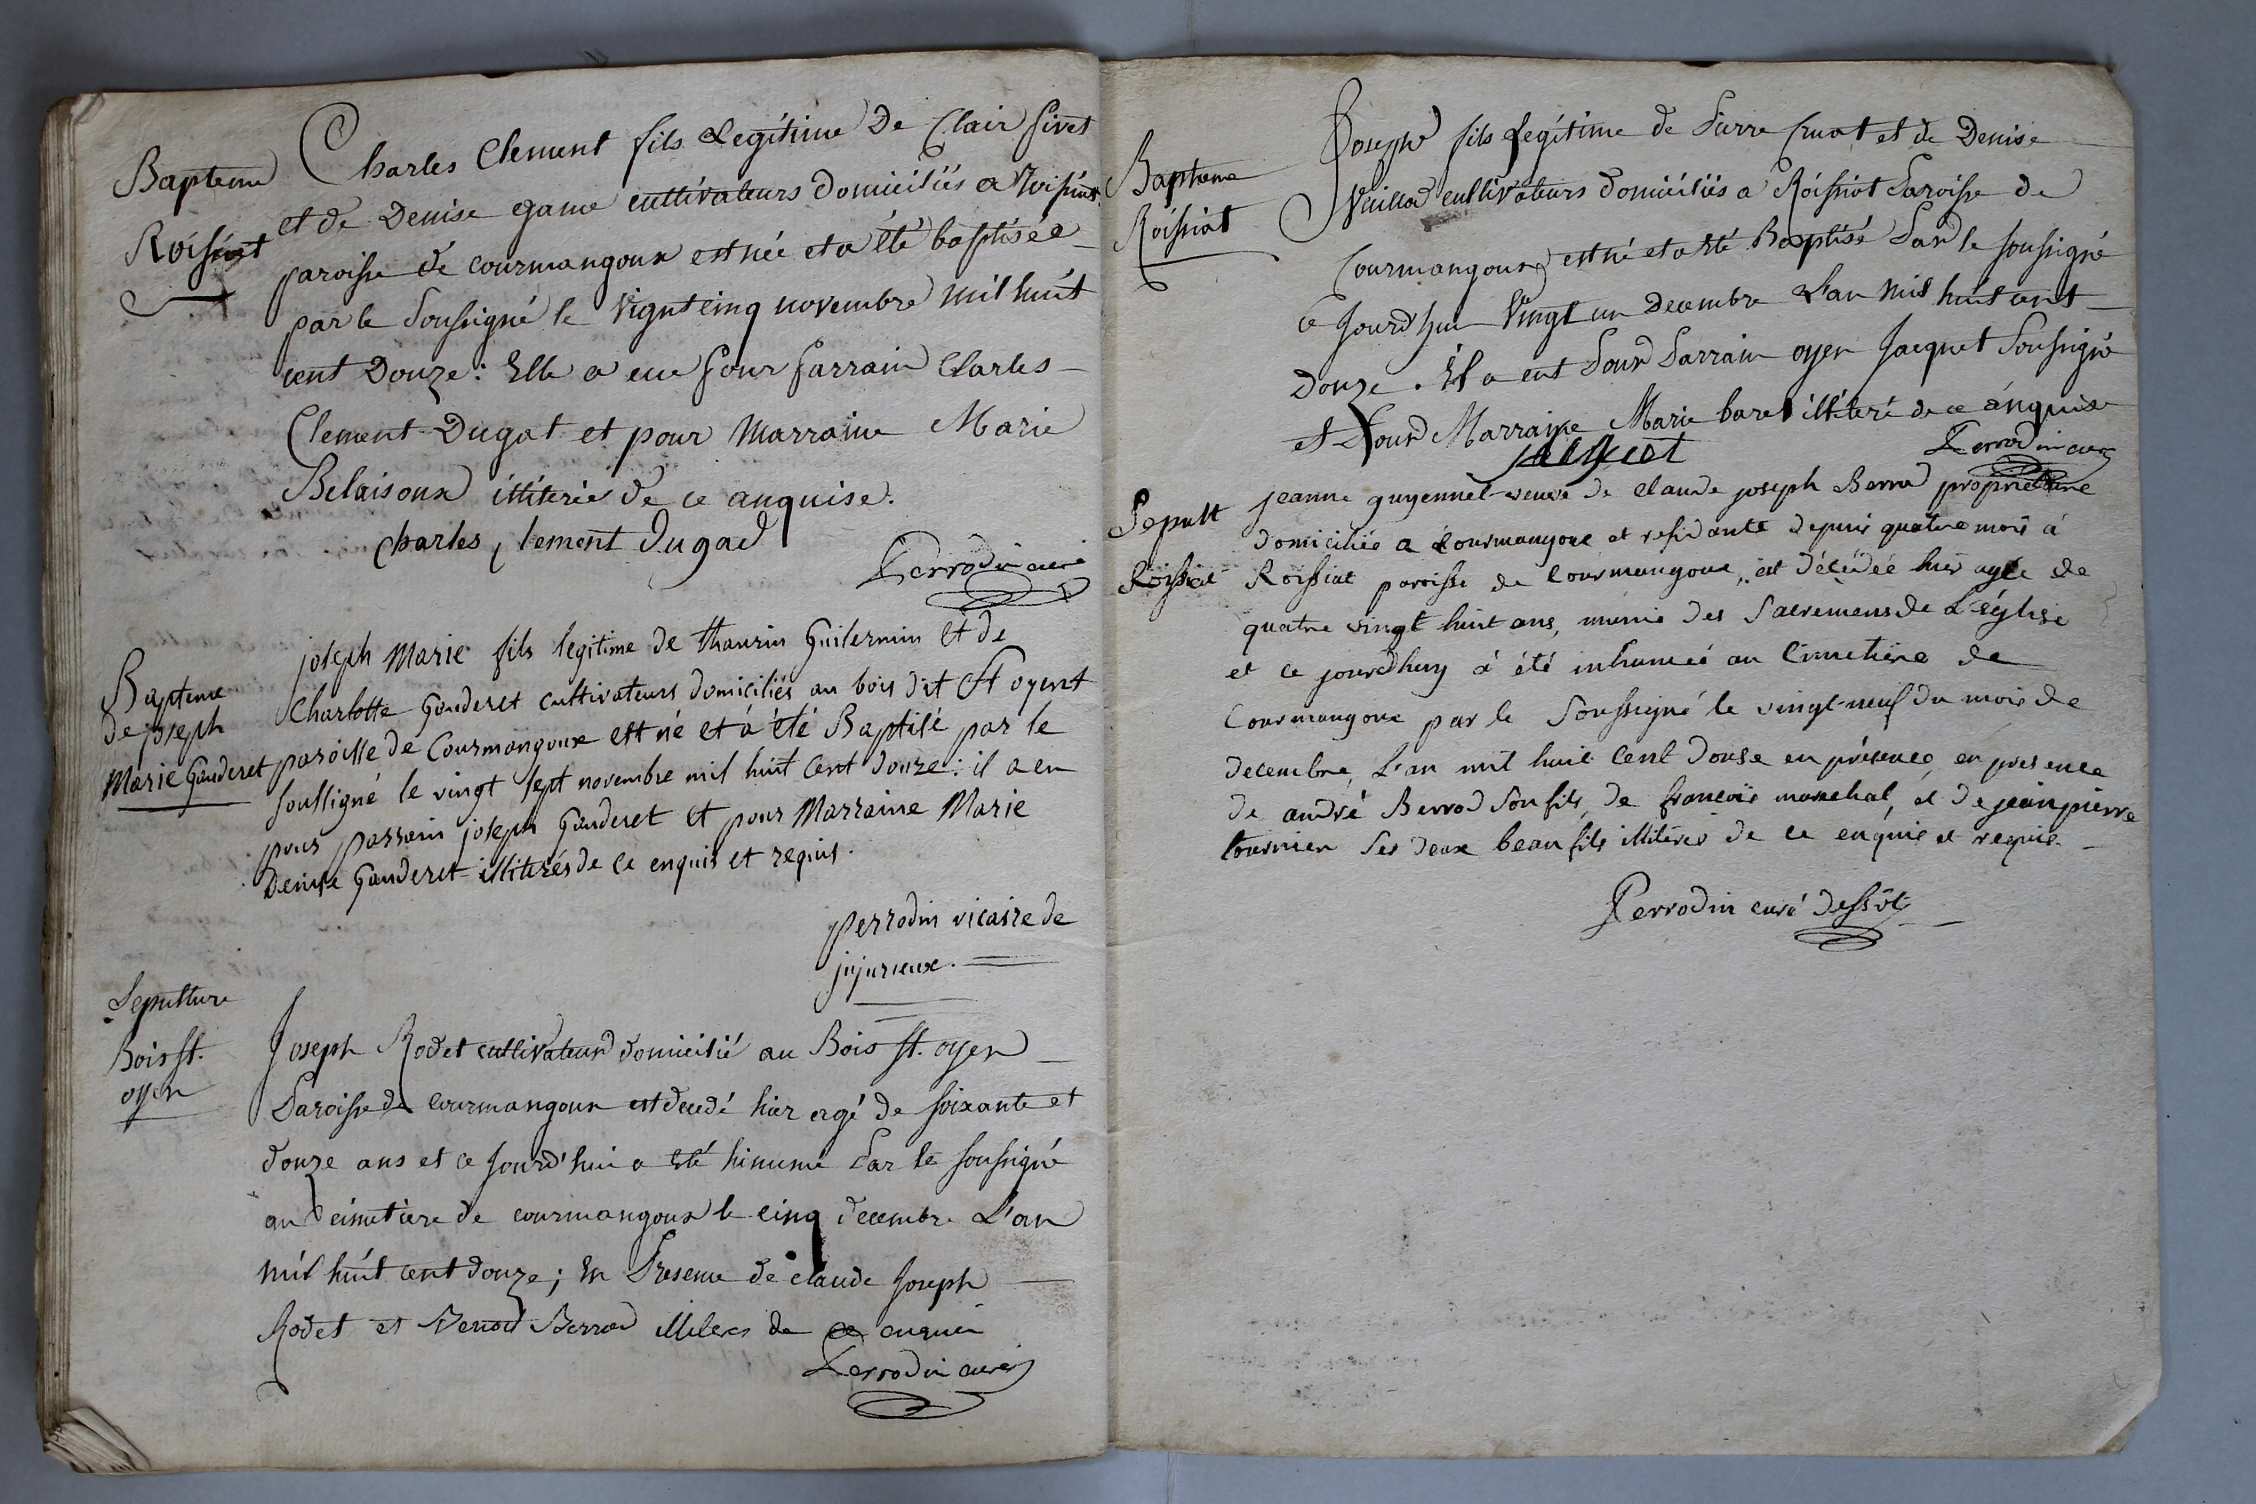 Bapteme
Roissiat
Charles Clement fils Legitime De Clair fivet
et de Denise game cultivateurs domiciliés a Roissiat
paroisse de courmangoux est née et a été baptisée
par le Soussigné le vignt cinq novembre mil huit
cent Douze : Elle a eue pour parrain Charles
Clement Dugat et pour Marraine Marie
Belaisoux illiterée de ce anquise.
charles clement dugad
Perrodin curé
Bapteme
de joseph
Marie Gauderet
joseph Marie fils legitime de thaurin Guilermin et de
Charlotte Gauderet cultivateurs domiciliés au bois d'it St oyent
paroisse de Courmangoux est né et à été Baptisé par le
soussigné le vingt sept novembre mil huit Cent douze : il a eu
pour parrain joseph Gauderet et pour Marraine Marie
Denise Gauderet illiterés de ce enquis et requis.
perrodin vicaire de
jujurieux.
Sepulture
Bois st.
oyen
Joseph Rodet cultivateur domicilié au Bois st. oyen
Paroisse de courmangoux est decedé hier agé de soixante et
douze ans et ce Jourd'hui a été hinumé Par le soussigné
au cimetiere de courmangoux le cinq decembre L'an
mil huit cent douze ; En Presence de claude Joseph
Rodet et Berrod illiteres de ce enquis
Perrodin curé
Bapteme
Roissiat
Joseph fils Legitime de Pierre Cruat et de Denise
Vuillod cultivateurs domiciliés a Roissiat Paroisse de
Courmangoux est né et a été Baptisé Par le soussigné
ce Jourd'hui Vingt un Decembre L'an Mil huit cent
Douze . Il a eut Pour Parrain oyen Jacquet Soussigné
et Pour Marraine Marie baret illiteré de ce anquise
jacquet
Perrodin curé
Sepult
Roissiat
jeanne guyennet veuve de claude joseph Berrod propriétaire
domiciliée a Courmangoux et residante depuis quatre mois à
Roissiat paroisse de Courmangoux, est décédée hier agée de
quatre vingt huit ans, munie des Sacremens de L'église
et ce jourdhuy à été inhumée au Cimetiere de
Courmangoux par le Soussigné le vingt-neuf du mois de
decembre, L'an mil huit Cent douse en présence, en presence
de andré Berrod son fils, de francois marechal, et de jean pierre
tournier ses deux beau fils illiterés de ce enquis et requis.
Perrodin curé dessst